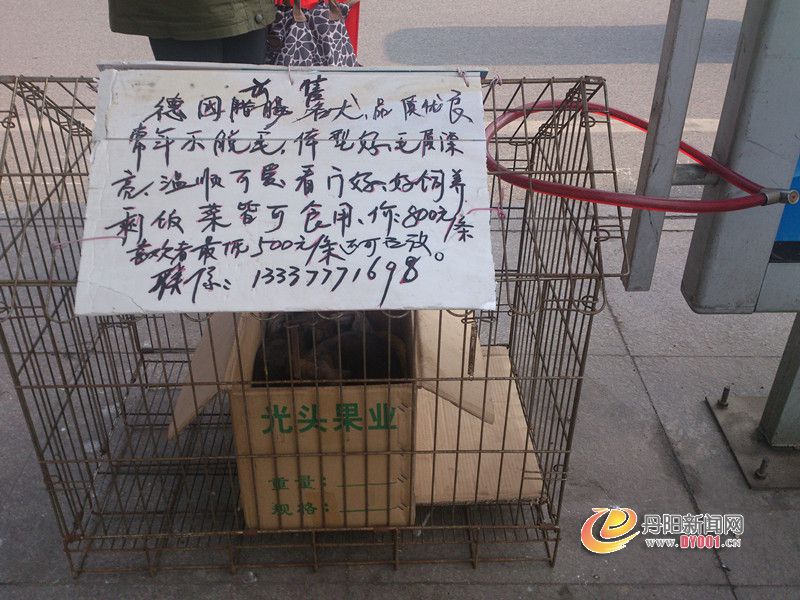 出售
德国腊腸 犬,品质优良
常年不脱毛,体型好,毛
亮,温顺可爱,看门好,好饲养
剩饭菜皆可食用、价:800元/条
喜欢者最低500元/条 可
联係:13337771698
光头果业
重量:
规格:
丹阳新闻网
WWW.DY001.CN